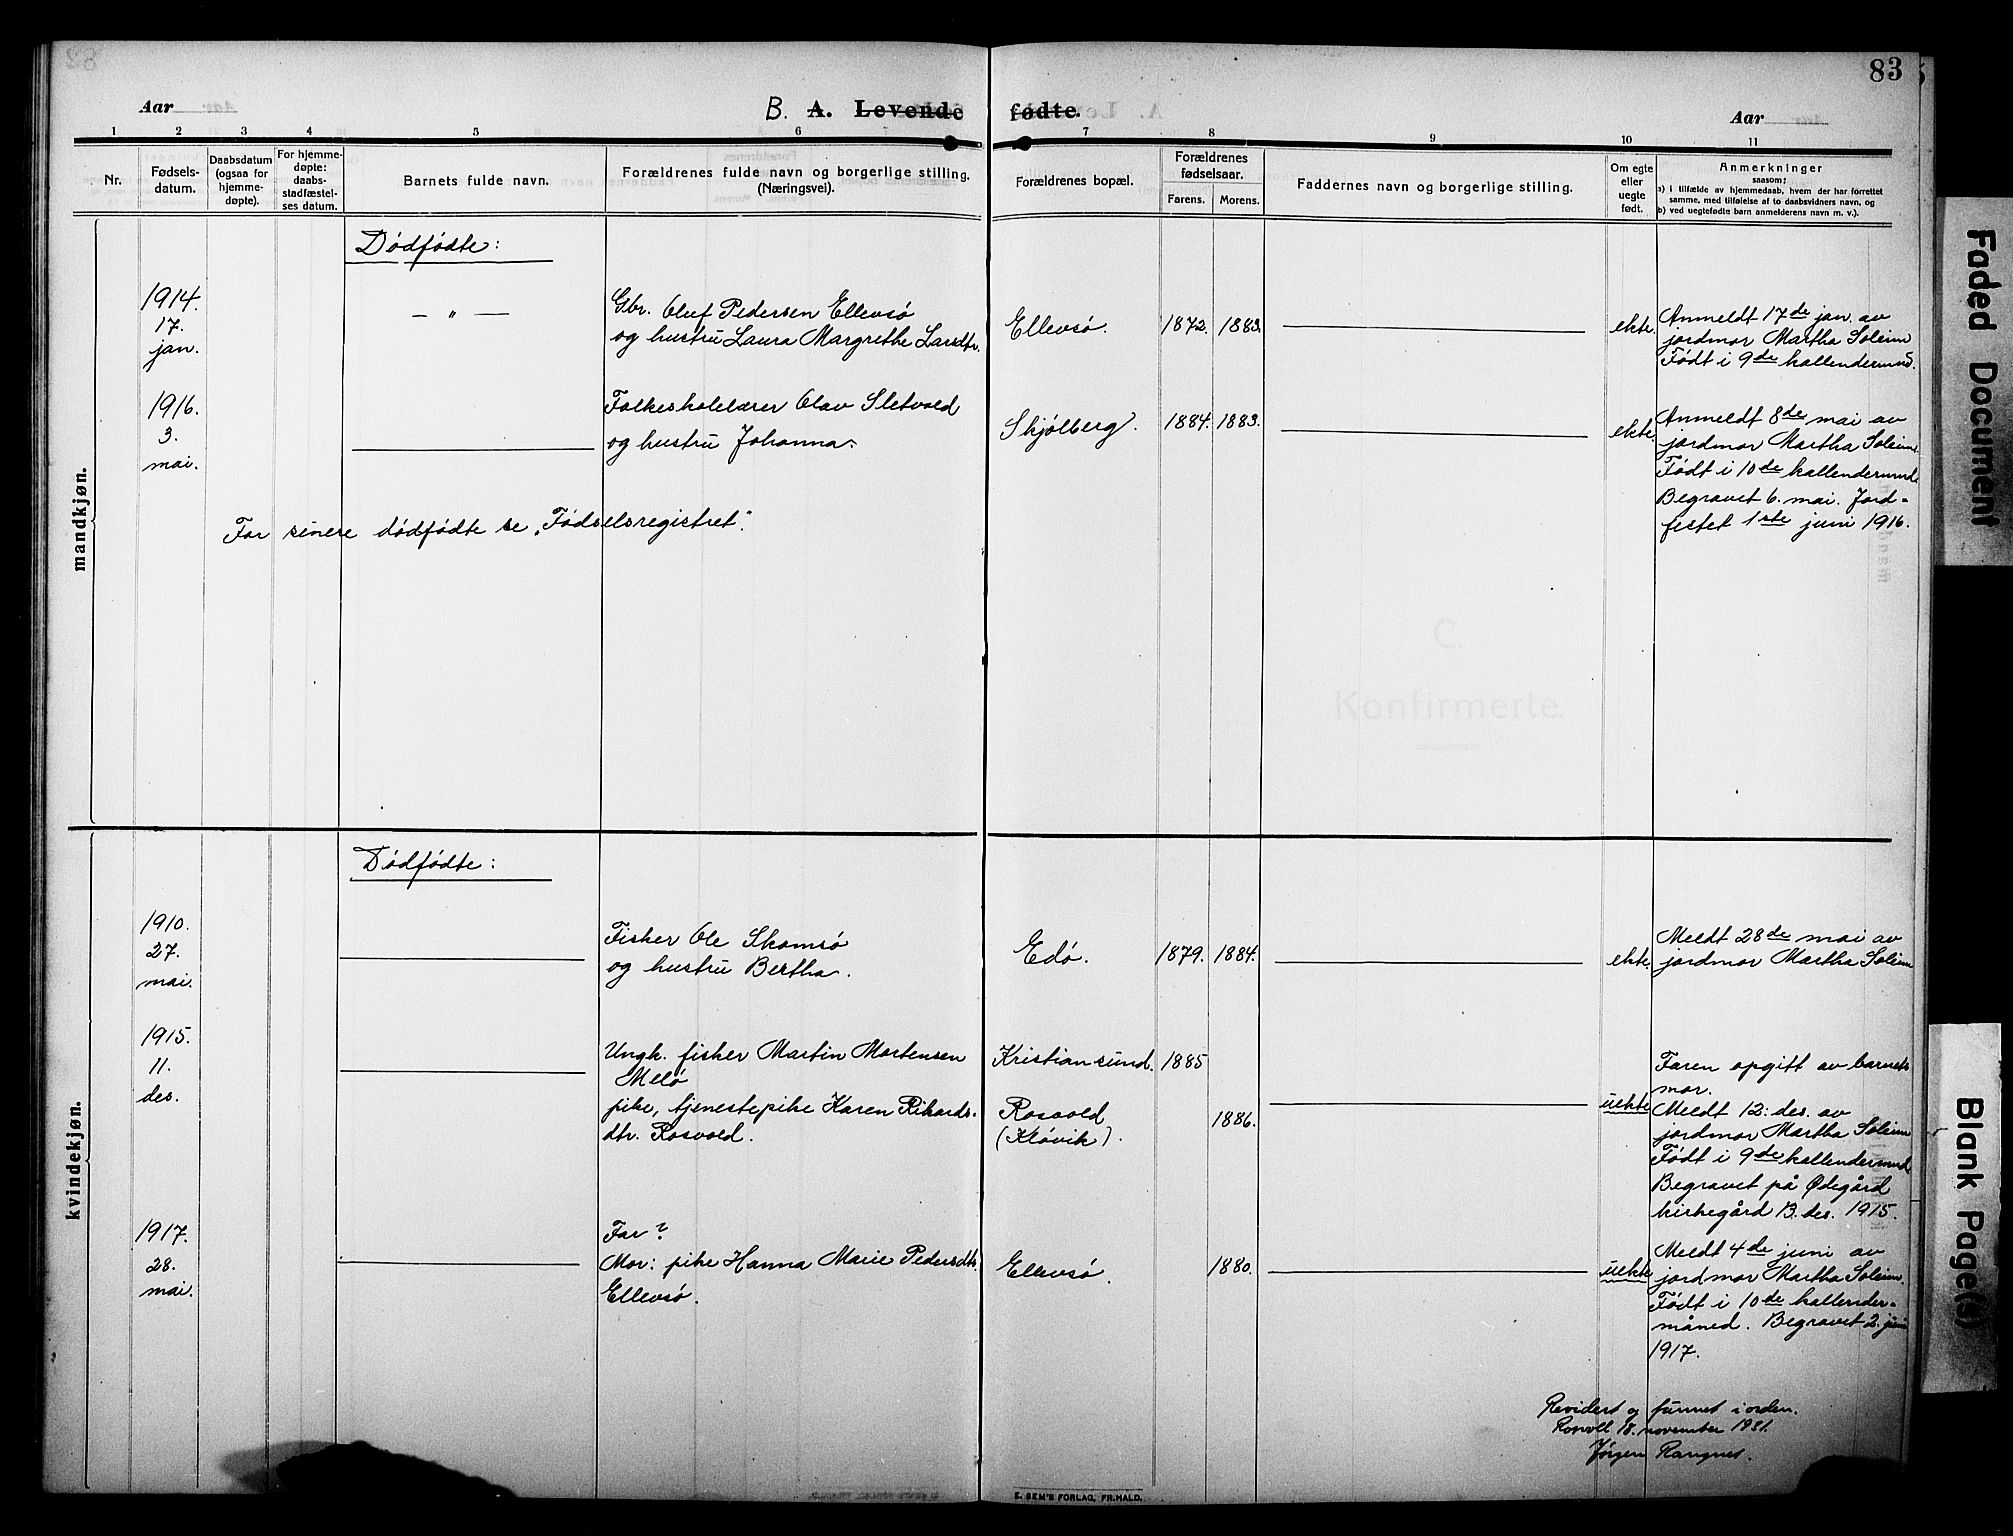 83
Aar
B. A. Levende fødte.
Aar
1 2 3 4 5 6 7 8 9 10 11
Nr.
Fødsels-
datum.
Daabsdatum
(ogsaa for
hjemme-
døpte).
For hjemme-
døpte:
daabs-
stadfæstel-
ses datum.
Barnets fulde navn.
Forældrenes fulde navn og borgerlige stilling.
(Næringsvei).
Forældrenes bopæl.
Forældrenes
fødselsaar.
Farens. Morens.
Faddernes navn og borgerlige stilling.
Om egte
eller
uegte
født.
Anmerkninger
saasom;
a) i tilfælde av hjemmedaab, hvem der har forrettet
samme, med tilføielse af to daabsvidners navn, og
b) ved uegtefødte barn anmelderens navn m. v.).
mandkjøn.
Dødfødte:
1914.
17.
jan.
— " —
Gbr. Oluf Pedersen Ellevsö
og hustru Laura Margrethe Larsdtr.
Ellevsö.
1872. 1883.
ekte.
Anmeldt 17de jan. av
jordmor Martha Soleim
Født i 9de kallendermnd.
1916.
3.
mai.
Folkeskolelærer Olav Sletvold
og hustru Johanna.
Skjölberg.
1884. 1883.
ekte.
Anmeldt 8de mai av
jordmor Martha Soleim.
Født i 10de kallendermnd.
Begravet 6. mai. Jord-
festet 1ste juni 1916.
For senere dødfødte se „Fødselsregistret".
C.
Konfirmerte
kvindekjøn.
Dødfødte:
1910.
27.
mai.
Fisker Ole Skomsö
og hustru Bertha.
Edö.
1879. 1884.
ekte.
Meldt 28de mai av
jordmor Martha Soleim
1915.
11.
des.
Ungk. fisker Martin Mortensen
Melö
pike, tjenestepike Karen Rikards-
dtr. Rosvold.
Kristiansund. 1885
Rosvold
(Kövik).
1886.
uekte
Faren opgitt av barnets
mor.
Meldt 12. des. av
jordmor Martha Soleim
Født i 9de kallendermnd.
Begravet på Ødegård
kirkegård 13. des. 1915.
1917.
28.
mai.
Far?
Mor: pike Hanna Marie Pedersdtr.
Ellevsö.
Ellevsö.
1880.
uekte
Meldt 4de juni av
jordmor Martha Soleim.
Født i 10de kallender-
måned. Begravet 2. juni
1917.
Revidert og funnet i orden.
18. november 1931.
Jørgen
E. SEM'S FORLAG, FR.HALD.
Faded Document
Blank Page(s)